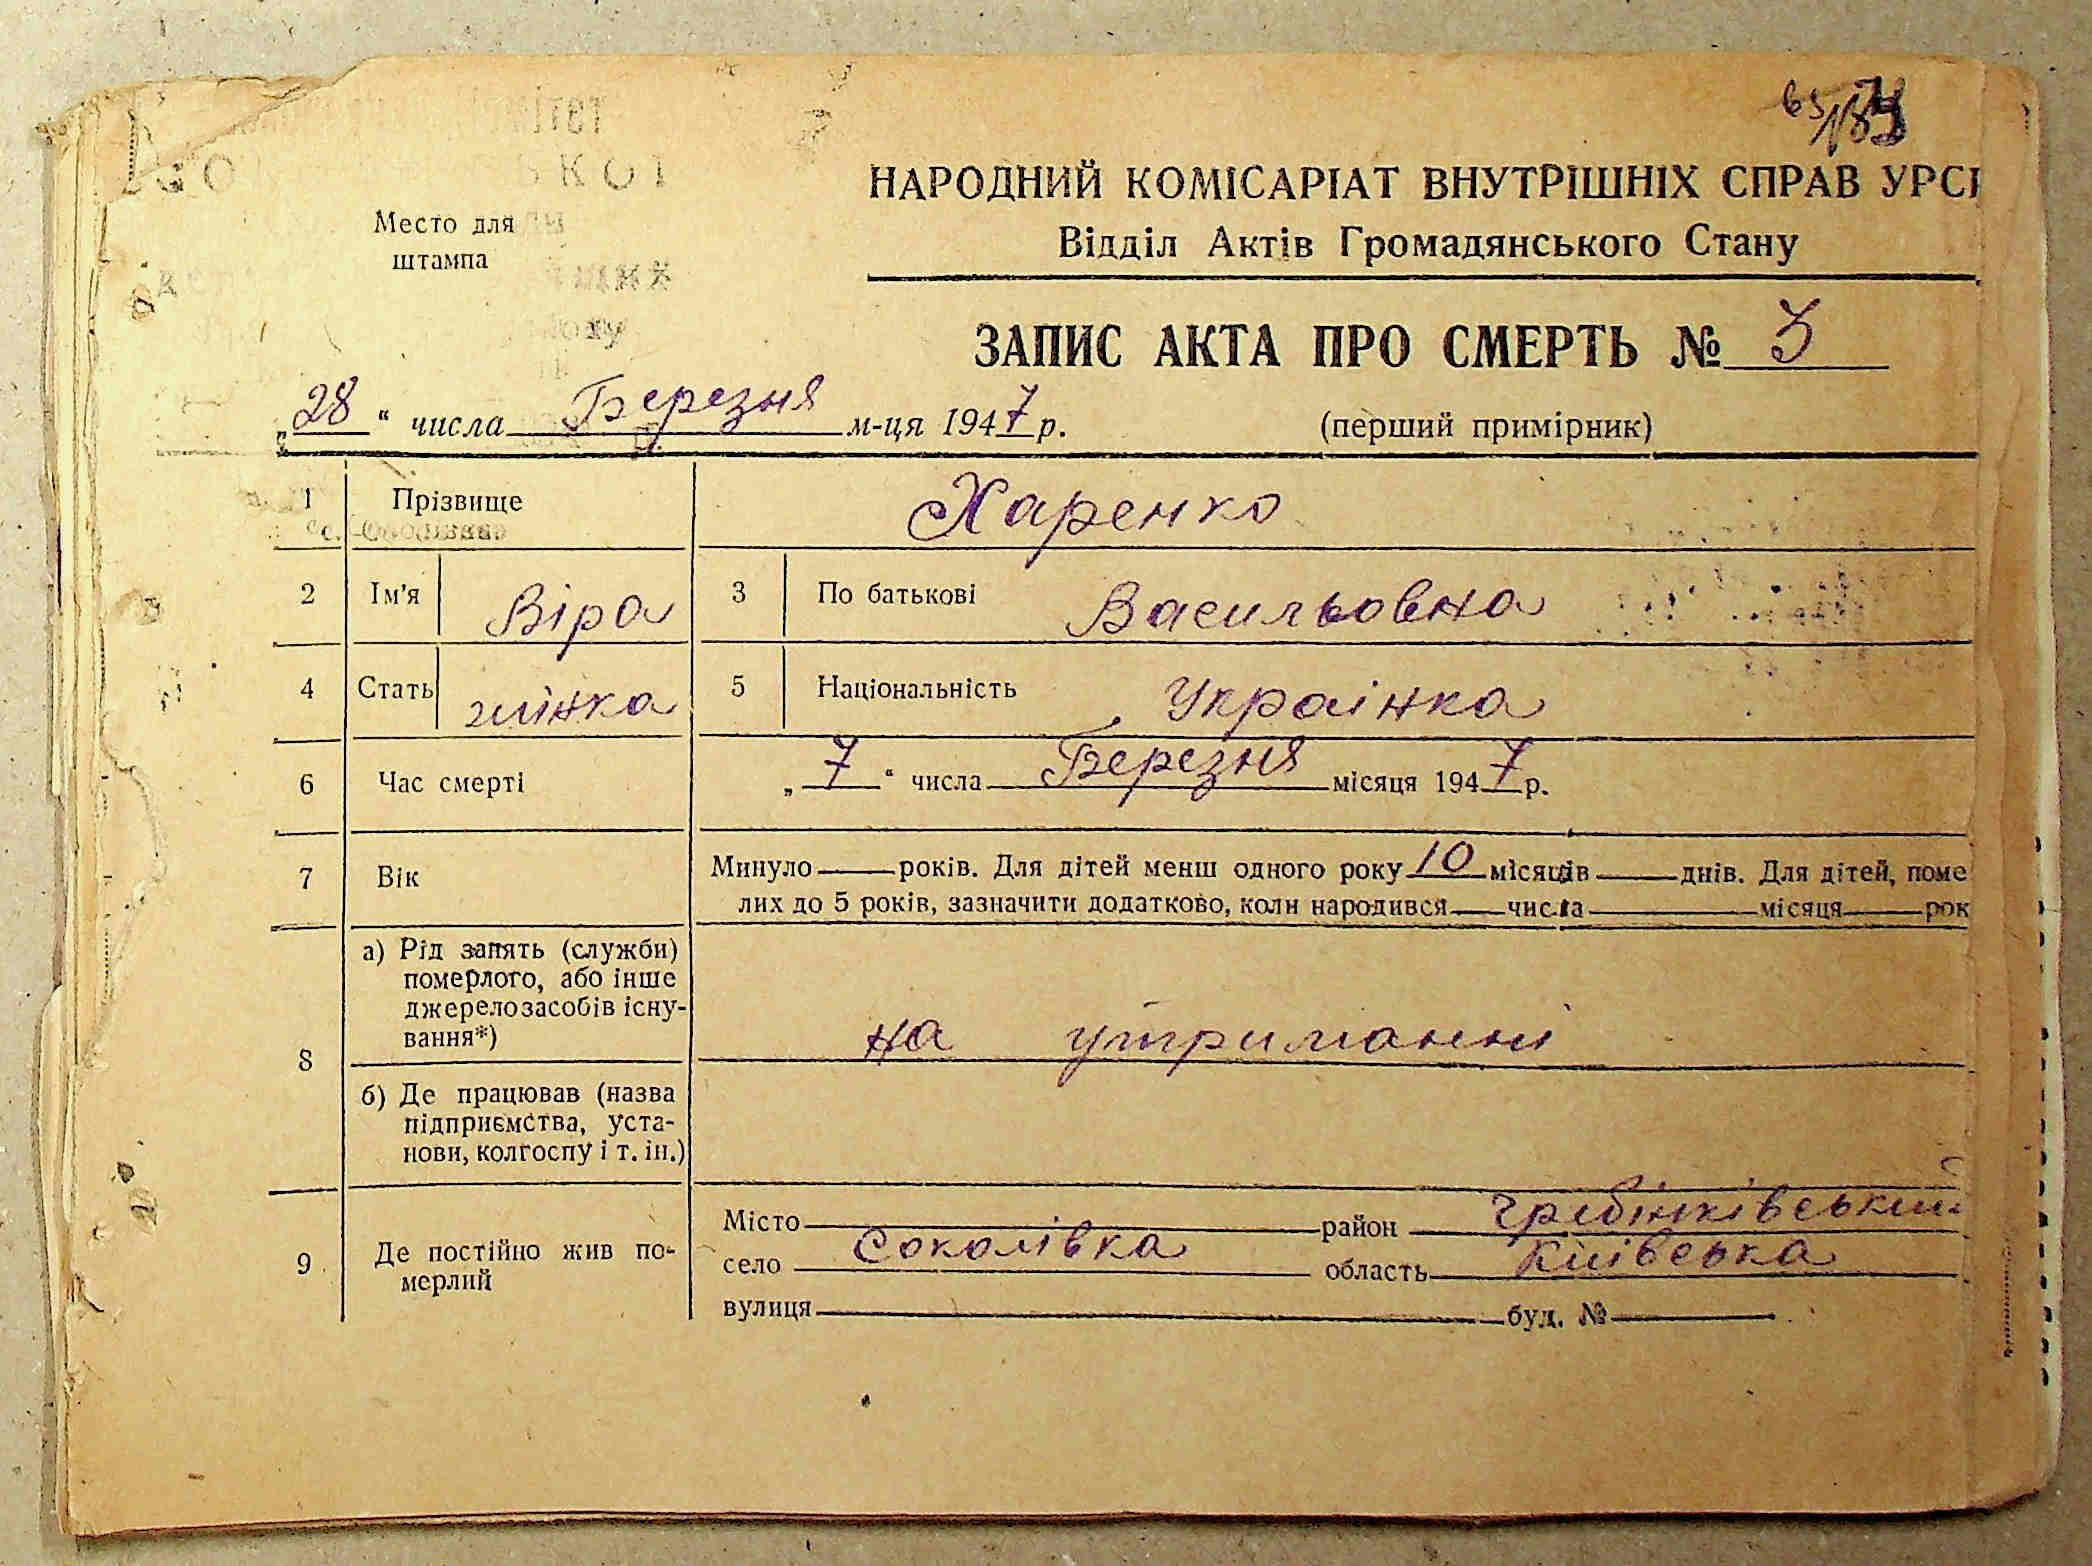 НАРОДНИЙ КОМІСАРІАТ ВНУТРІШНІХ СПРАВ УРСР
Місто для
штампа
Відділ Актів Громадянського Стану
ЗАПИС АКТА ПРО СМЕРТЬ № 3
„28“ числа Березня м-ця 1947 р. (перший примірник)
1 Прізвище Харенко
2 Ім'я Віра 3 По батькові Васильовна
4 Стать жінка 5 Національність Українка
6 Час смерті „7“ числа Березня місяця 1947 р.
7 Вік Минуло — років. Для дітей менш одного року 10 місяців — днів. Для дітей, поме
лих до 5 років, зазначити додатково, коли народився — числа — місяця — рок
8 а) Рід занять (служби)
померлого, або інше
джерело засобів існу-
вання*) на утриманні
б) Де працював (назва
підприємства, уста-
нови, колгоспу і т. ін.)
9 Де постійно жив по-
мерлий
Місто район Гребінківський
село Соколівка область Київська
вулиця буд. №